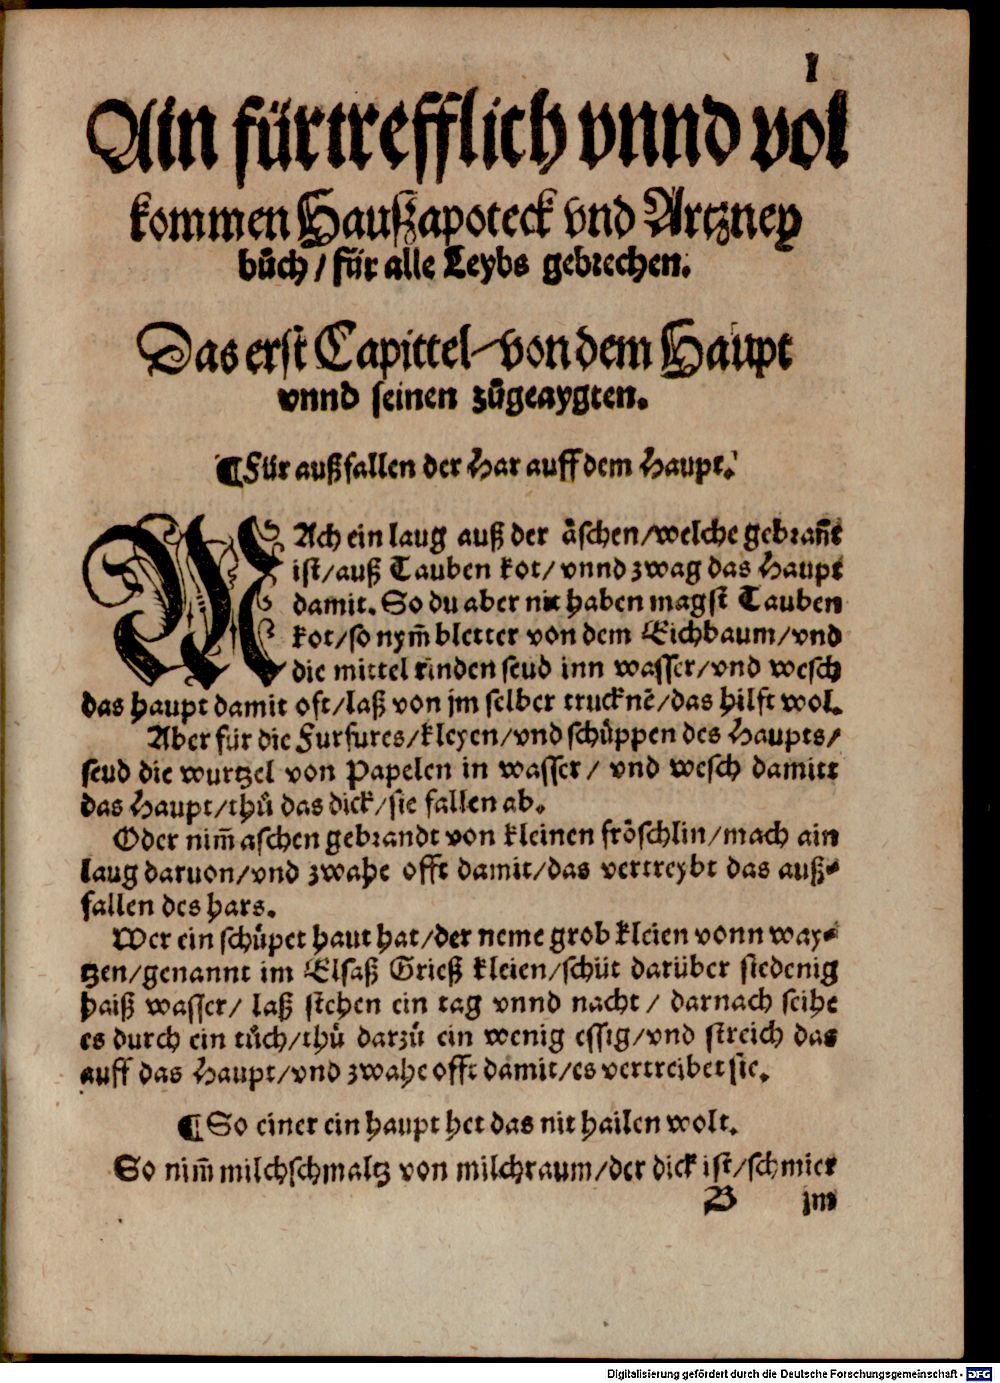 1
Ain fürtrefflich vnnd vol
kommen Haußapoteck vnd Artzney
bůch / für alle Leybs gebrechen.
Das erst Capittel / von dem Haupt
vnnd seinen zůgeaygten.
¶ Für außfallen der Har auff dem Haupt.
MAch ein laug auß der åschen / welche gebrañt
ist / auß Tauben kot / vnnd zwag das Haupt
damit. So du aber nit haben magst Tauben
kot / so nym̃ bletter von dem Eichbaum / vnd
die mittel rinden seud inn wasser / vnd wesch
das haupt damit oft / laß von jm selber trucknẽ / das hilft wol.
Aber für die Furfures / kleyen / vnd schůppen des Haupts /
seud die wurtzel von Papelen in wasser / vnd wesch damitt
das Haupt / thů das dick / sie fallen ab.
Oder nim̃ aschen gebrandt von kleinen fröschlin / mach ain
laug daruon / vnd zwahe offt damit / das vertreybt das auß-
fallen des hars.
Wer ein schůpet haut hat / der neme grob kleien vonn way-
tzen / genannt im Elsaß Grieß kleien / schüt darüber siedenig
haiß wasser / laß stehen ein tag vnnd nacht / darnach seihe
es durch ein tůch / thů darzů ein wenig essig / vnd streich das
auff das Haupt / vnd zwahe offt damit / es vertreibet sie.
¶ So einer ein haupt het das nit hailen wolt.
So nim̃ milchschmaltz von milchraum / der dick ist / schmier
B jm
Digitalisierung gefördert durch die Deutsche Forschungsgemeinschaft - DFG